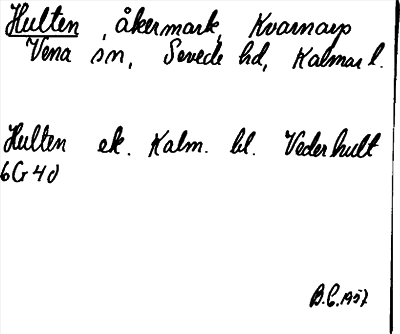 Hulten, åkermark, Kvarnarp
Vena sn, Sevede hd, Kalmar l.
Hulten ek. Kalm. bl. Vederhult
6G40
B.C. 1957